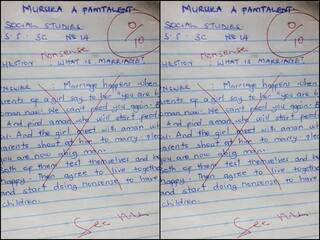 MURUKA A PAMTALENT
SOCIAL STUDIES
S.S 3C NO 14
0/10
Nonsense
WHAT IS MARRIAGE?
Marriage happens when
parents of a girl say to her "you are
woman now. We want feed you again.
And find aman who will start feed
And the girl meet with aman
parents shout at him to marry
you are now abig man
both of them test themselves and
happy. Then agree to live together
and start doing nonsense to have
children.
See Me
MURUKA A PAMTALENT
SOCIAL STUDIES
S.S 3C NO 14
0/10
Nonsense
WHAT IS MARRIAGE?
Marriage happens when
parents of a girl say to her "you are
woman now. We want feed you again.
And find aman who will start feed
And the girl meet with aman
parents shout at him to marry
you are now abig man
both of them test themselves and
happy. Then agree to live together
and start doing nonsense to have
children.
See Me